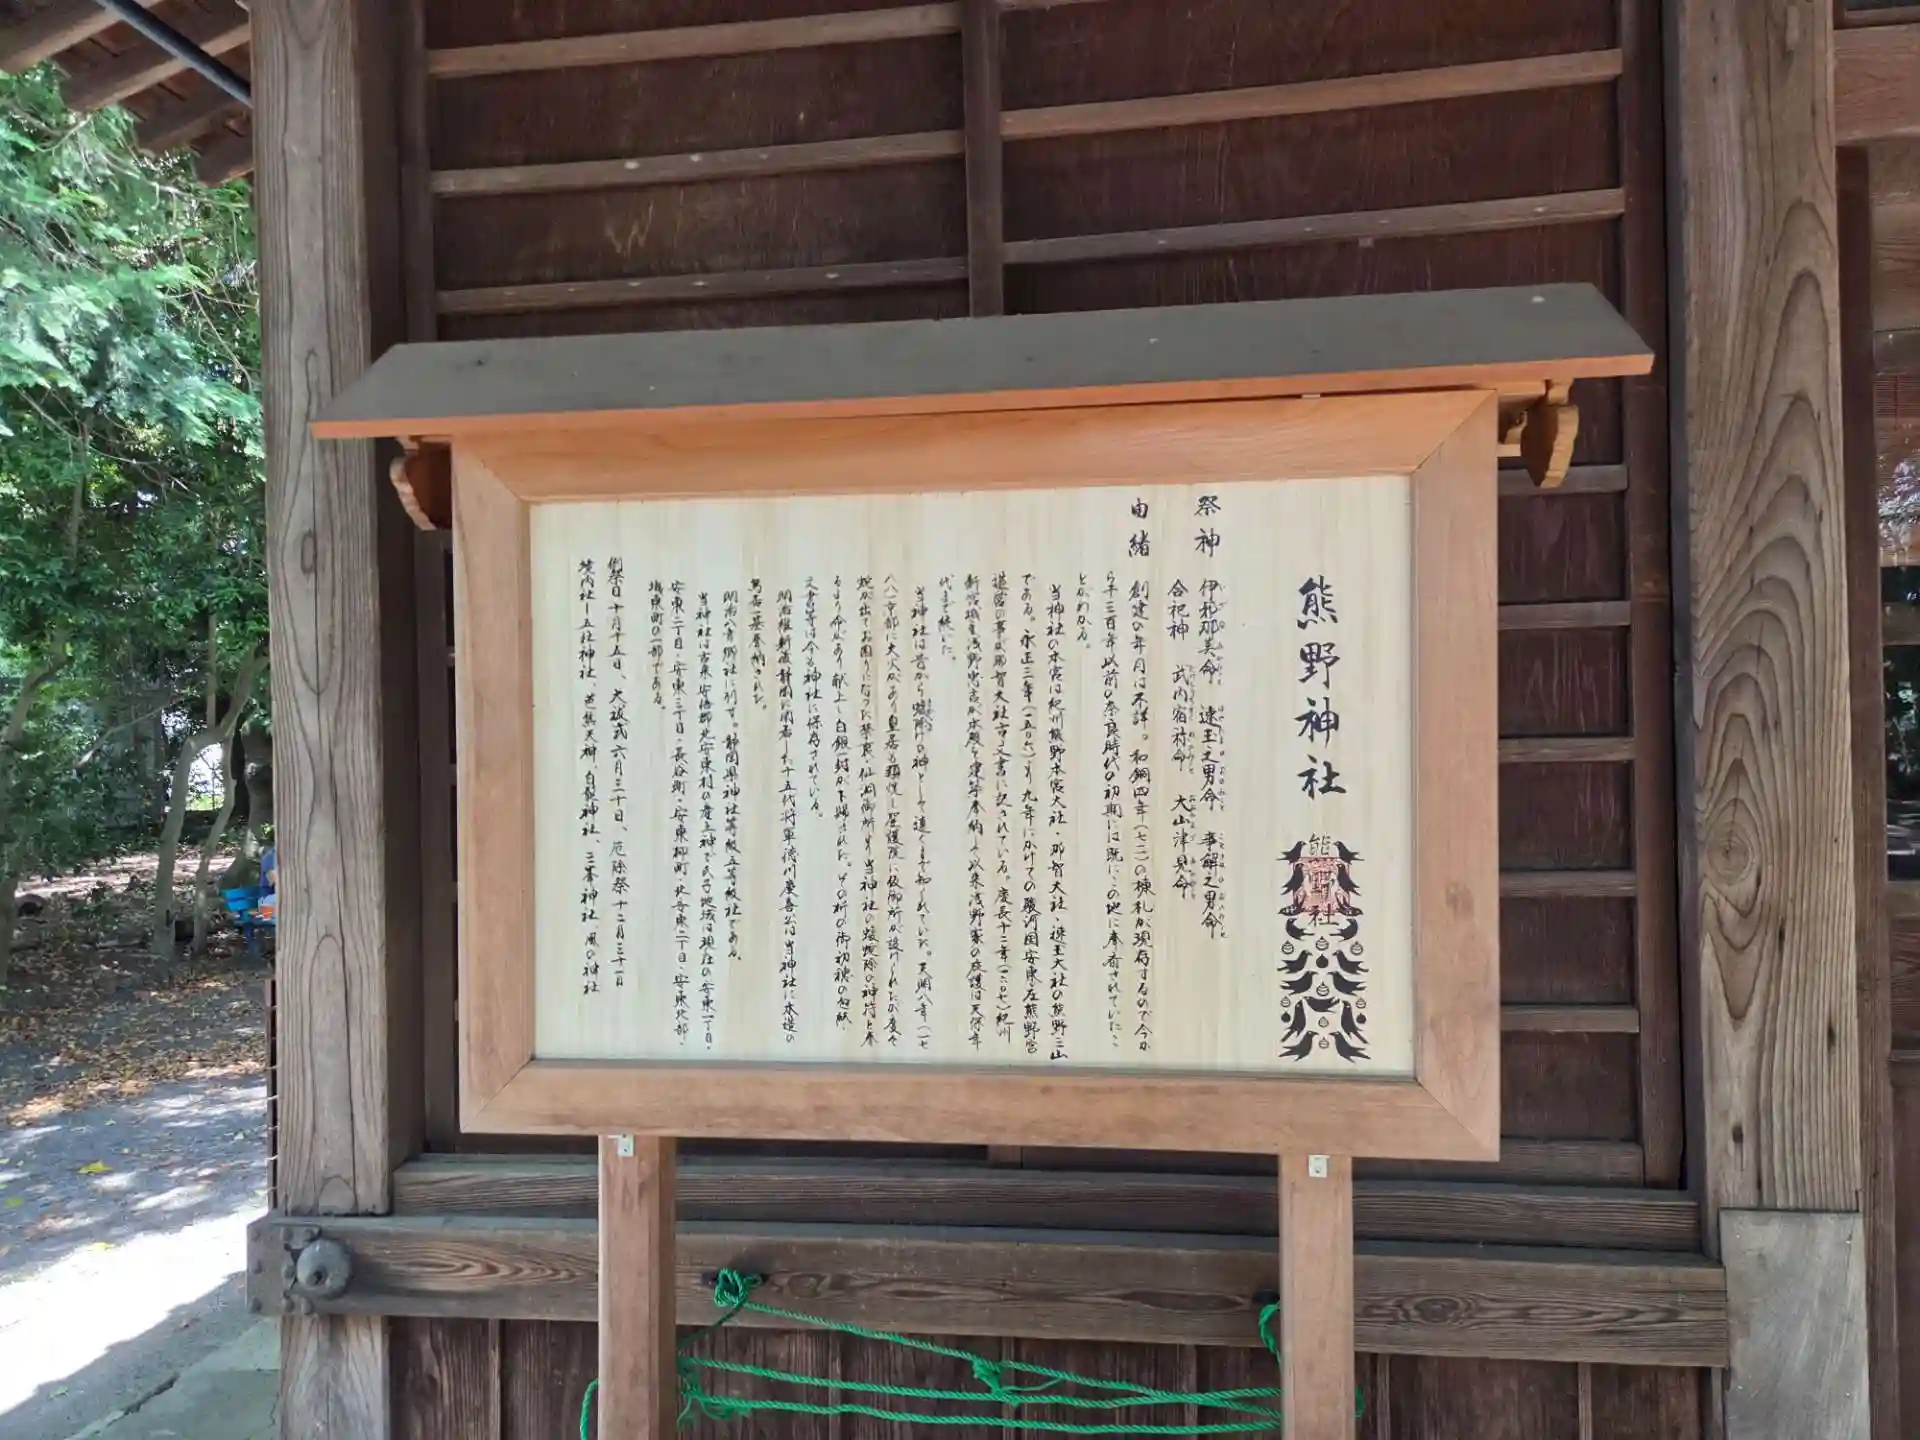 熊野神社
熊野社
祭神
伊邪那美命 速玉之男命 事解之男命
合祀神 武内宿祢命 大山津見命
由緒
創建の年月は不詳。和銅四年(七一一)の棟札が現存するので今か
ら千三百年以前の奈良時代の初期には既にこの地に奉斎されていたこ
とがわかる。
当神社の本宮は紀州熊野本宮大社・那智大社・速玉大社の熊野三山
である。永正三年(一五〇六)より九年にかけての駿河国安東庄熊野宮
造営の事が那智大社古文書に記されている。慶長十二年(一六〇七)紀州
新宮城主浅野忠吉が本殿を建築奉納し以来浅野家の庇護は天保年
代まで続いた。
当神社は昔から蝮除けの神として遠くまで知られていた。天明八年(一七
八八)京都に大火があり皇居も類焼し聖護院に仮御所が設けられたが度々
蛇が出てお困りになった禁裏、仙洞御所より当神社の蝮蛇除の神符を奉
るよう命があり献上し白銀一封が下賜された。その折の御初穂の包紙、
文書等は今も神社に保存されている。
明治維新後静岡に閑居した十五代将軍徳川慶喜公は当神社に木造の
鳥居一基奉納された。
明治八年郷社に列す。静岡県神社等級五等級社である。
当神社は古来安倍郡北安東村の産土神で氏子地域は現在の安東一丁目・
安東二丁目・安東三丁目・長谷町・安東柳町・北安東一丁目・安東北部・
城東町の一部である。
例祭日 十月十五日、大祓式 六月三十日、厄除祭 十二月三十一日
境内社―五社神社、芭蕉天神、白髭神社、三峯神社、風の神社